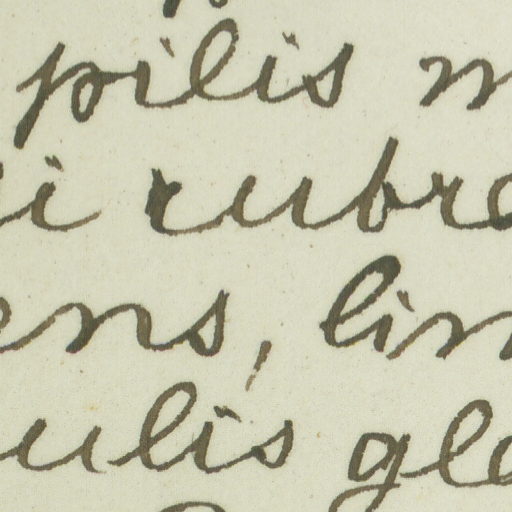 pilis m
i rubre
ens, lim
ulis gle